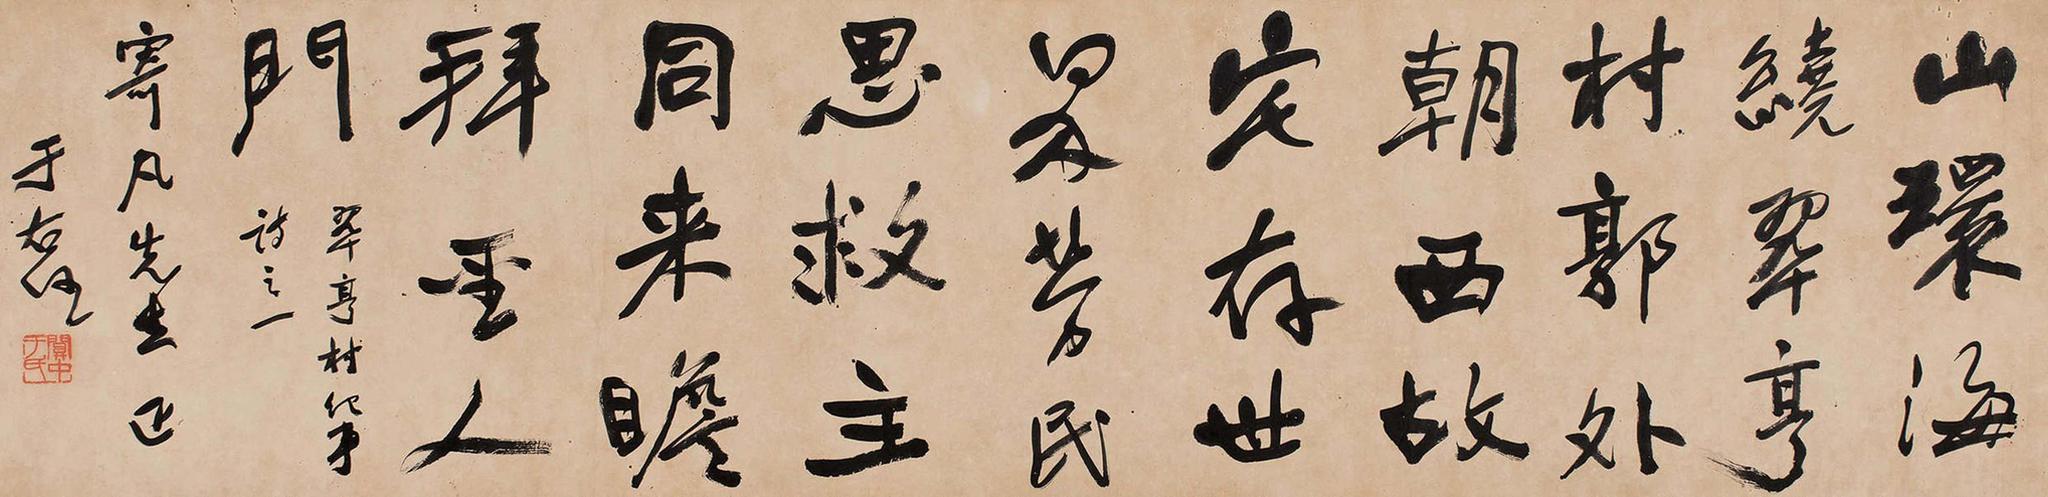 山環海
繞翠亨
村郭外
朝西故
宅存世
界勞民
思救主
同来瞻
拜聖人
門
翠亨村紀事
詩之一
寄凡先生正
于右任
關中
于氏